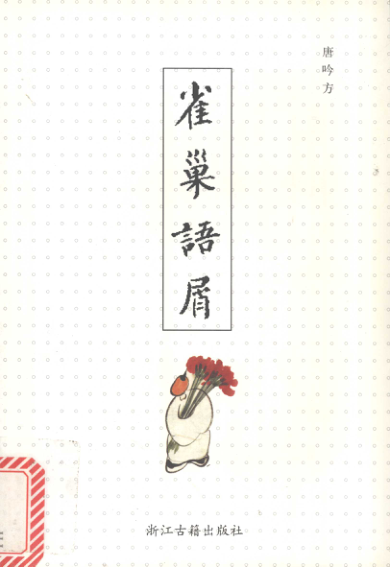 唐吟方
雀巢語屑
浙江古籍出版社